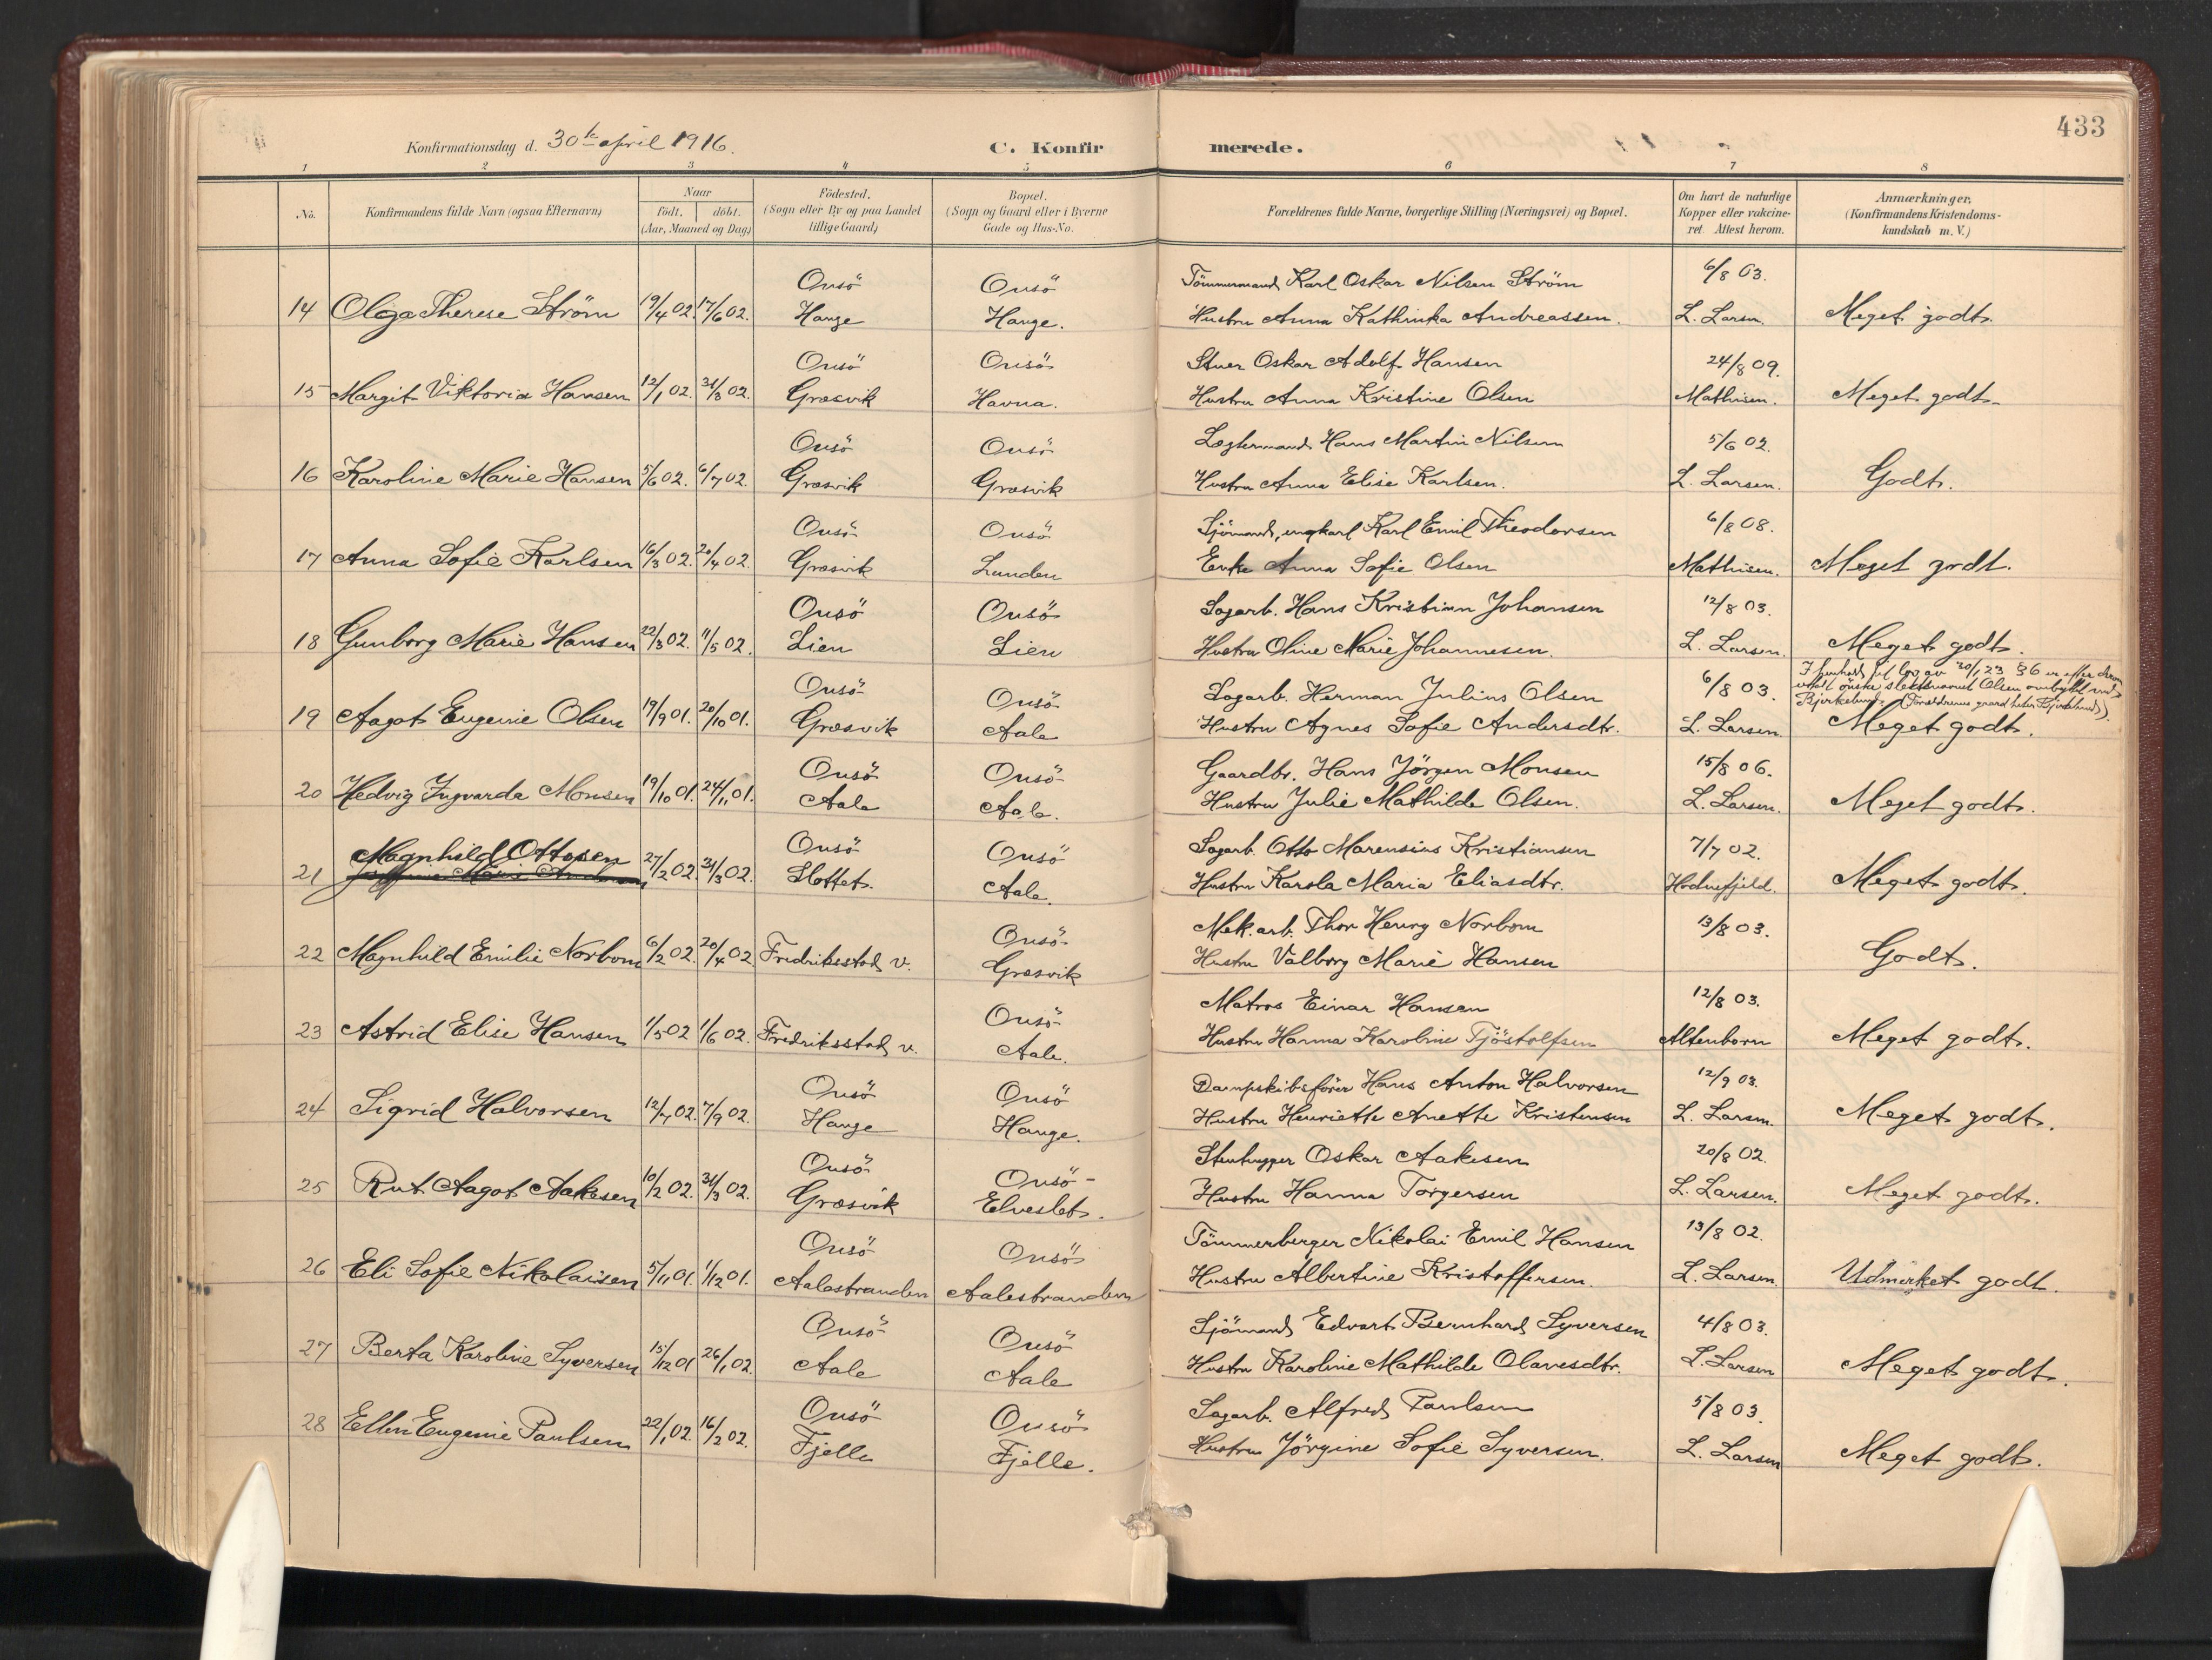 433
Konfirmationsdag d. 30te april 1916.
C. Konfirmerede.
1 2 3 4 5 6 7 8
No. Konfirmandens fulde Navn (ogsaa Efternavn) Naar født. døbt. (Aar, Maaned og Dag) Fødested. (Sogn eller By og paa Landet tillige Gaard) Bopæl. (Sogn og Gaard eller i Byerne Gade og Hus-No. Forældrenes fulde Navne, borgerlige Stilling (Næringsvei) og Bopæl. Om havt de naturlige Kopper eller vakcineret. Attest herom. Anmærkninger, (Konfirmandens Kristendomskundskab m. V.)
Onsö Onsö Tömmermand Karl Oskar Nilsen Ström 6/8 03.
14 Olga Therese Ström 19/4 02. 17/6 02. Hauge Hauge. Hustru Anna Kathinka Andreassen. L. Larsen. Meget godt.
Onsö Onsö Stuer Oskar Adolf Hansen 24/8 09.
15 Margit Viktoria Hansen 12/1 02. 31/3 02. Græsvik Havna. Hustru Anna Kristine Olsen Mathisen. Meget godt.
Onsö Onsö Lægtermand Hans Martin Nilsen 5/6 02.
16 Karoline Marie Hansen 5/6 02. 6/7 02. Græsvik Græsvik Hustru Anna Elise Karlsen. L. Larsen. Godt.
Onsö Onsö Sjömand, ungkarl Karl Emil Theodorsen 6/8 08.
17 Anna Sofie Karlsen 16/3 02. 20/4 02. Græsvik Lunden Enke Anna Sofie Olsen Mathisen. Meget godt.
Onsö Onsö Sagarb. Hans Kristian Johansen 12/8 03.
18 Gunborg Marie Hansen 22/3 02. 11/5 02. Lien Lien Hustru Oline Marie Johannesen. L. Larsen. Meget godt.
Onsö Onsö Sagarb. Herman Julius Olsen 6/8 03. I henhold til lov av 23 § 6 er efter derom
uttalt önske slektsnavnet Olsen ombyttet med
Bjerkelund. (Forældrenes gaard heter Bjerkelund).
19 Aagot Eugenie Olsen 19/9 01. 20/10 01. Græsvik Aale Hustru Agnes Sofie Andersdtr. L. Larsen. Meget godt.
Onsö Onsö Gaardbr. Hans Jörgen Monsen 15/8 06.
20 Hedvig Ingvarda Monsen 19/10 01. 24/11 01. Aale Aale. Hustru Julie Mathilde Olsen. L. Larsen. Meget godt.
Magnhild Ottosen Onsö Onsö Sagarb. Otto Marensius Kristiansen 7/7 02.
21 27/2 02. 31/3 02. Slottet. Aale. Hustru Karola Maria Eliasdtr. Hodnefjeld. Meget godt.
Onsö Mek.arb. Thor Henry Norbom 13/8 03.
22 Magnhild Emilie Norbom 6/2 02. 20/4 02 Fredriksstad v. Græsvik Hustru Valborg Marie Hansen Godt.
Onsö Matros Einar Hansen 12/8 03.
23 Astrid Elise Hansen 1/5 02 1/6 02. Fredriksstad v. Aale. Hustru Hanna Karoline Tjöstolfsen Altenborn Meget godt.
Onsö Onsö Dampskibsförer Hans Anton Halvorsen 12/9 03.
24 Sigrid Halvorsen 12/7 02. 7/9 02. Hauge Hauge. Hustru Henriette Anette Kristensen L. Larsen. Meget godt.
Onsö Onsö Stenhugger Oskar Aakesen 20/8 02.
25 Rut Aagot Aakesen 10/2 02. 31/3 02. Græsvik Elveslet. Hustru Hanna Torgersen L. Larsen. Meget godt.
Onsö Onsö Tömmerberger Nikolai Emil Hansen 13/8 02.
26 Eli Sofie Nikolaisen 5/11 01. 1/12 01. Aalestranden Aalestranden Hustru Albertine Kristoffersen. L. Larsen. Udmerket godt.
Onsö Onsö Sjömand Edvart Bernhard Syversen 4/8 03.
27 Berta Karoline Syversen 15/12 01 26/1 02. Aale Aale Hustru Karoline Mathilde Olavesdtr. L. Larsen Meget godt.
Onsö Onsö Sagarb. Alfred Paulsen 5/8 03.
28 Ellen Eugenie Paulsen 22/1 02. 16/2 02. Fjelle Fjelle. Hustru Jörgine Sofie Syversen. L. Larsen Meget godt.